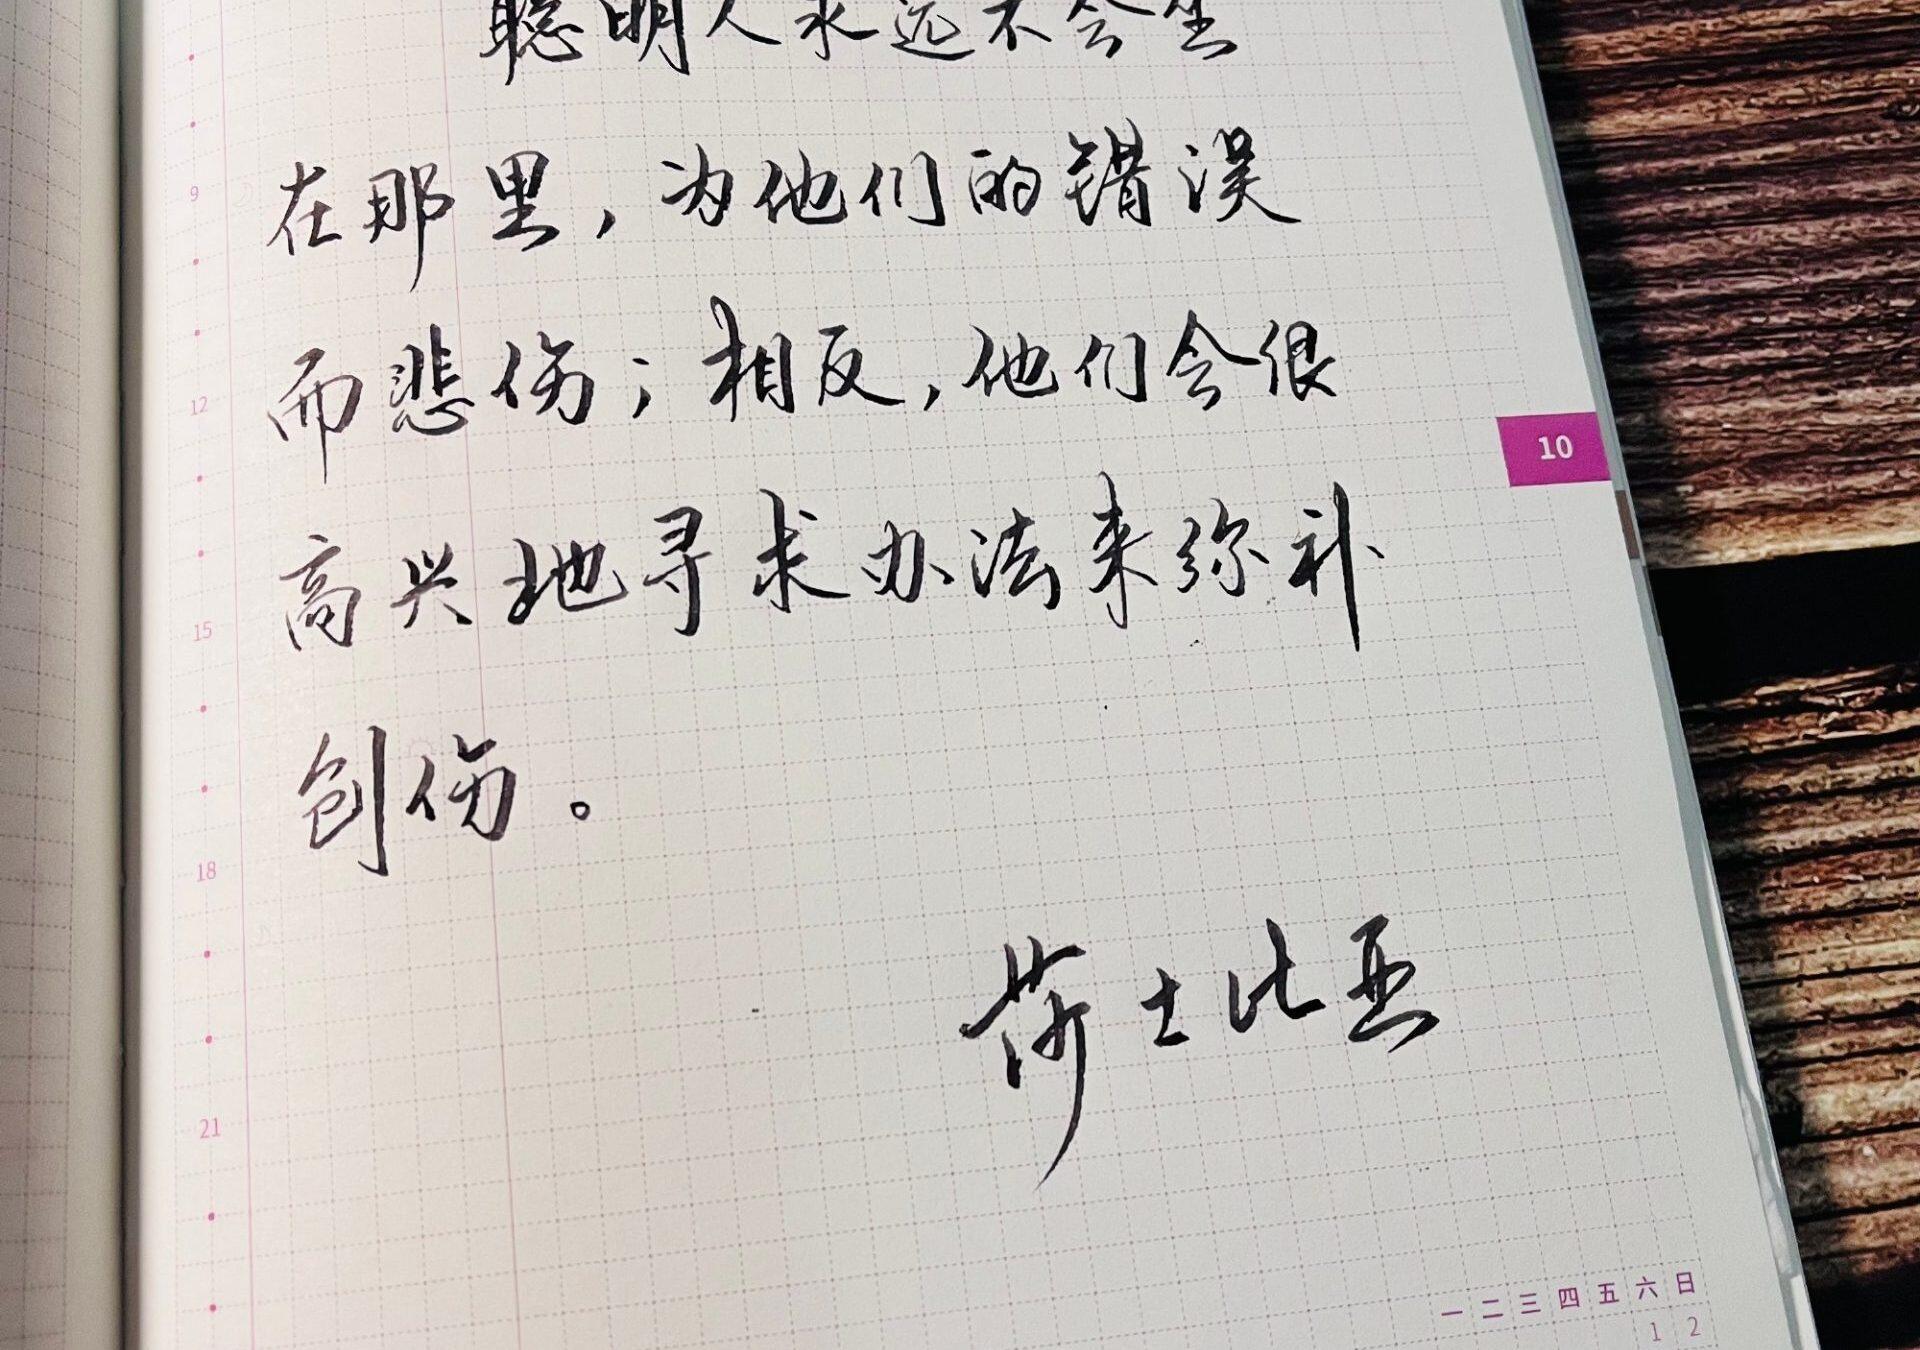 聪明人永远不会坐
在那里，为他们的错误
9
而悲伤；相反，他们会很
12
10
高兴地寻求办法来弥补
15
创伤。
18
莎士比亚
21
一 二 三 四 五 六 日
1 2